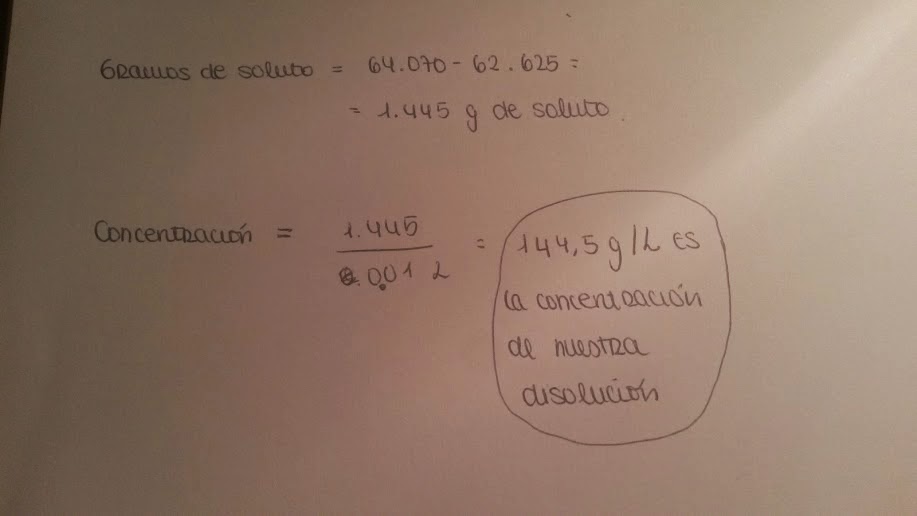 Gramos de soluto = 64.070 - 62.625 =
= 1.445 g de soluto.
Concentración = 1.445 / 0.01 L = 144,5 g/L es
la concentración
de nuestra
disolución